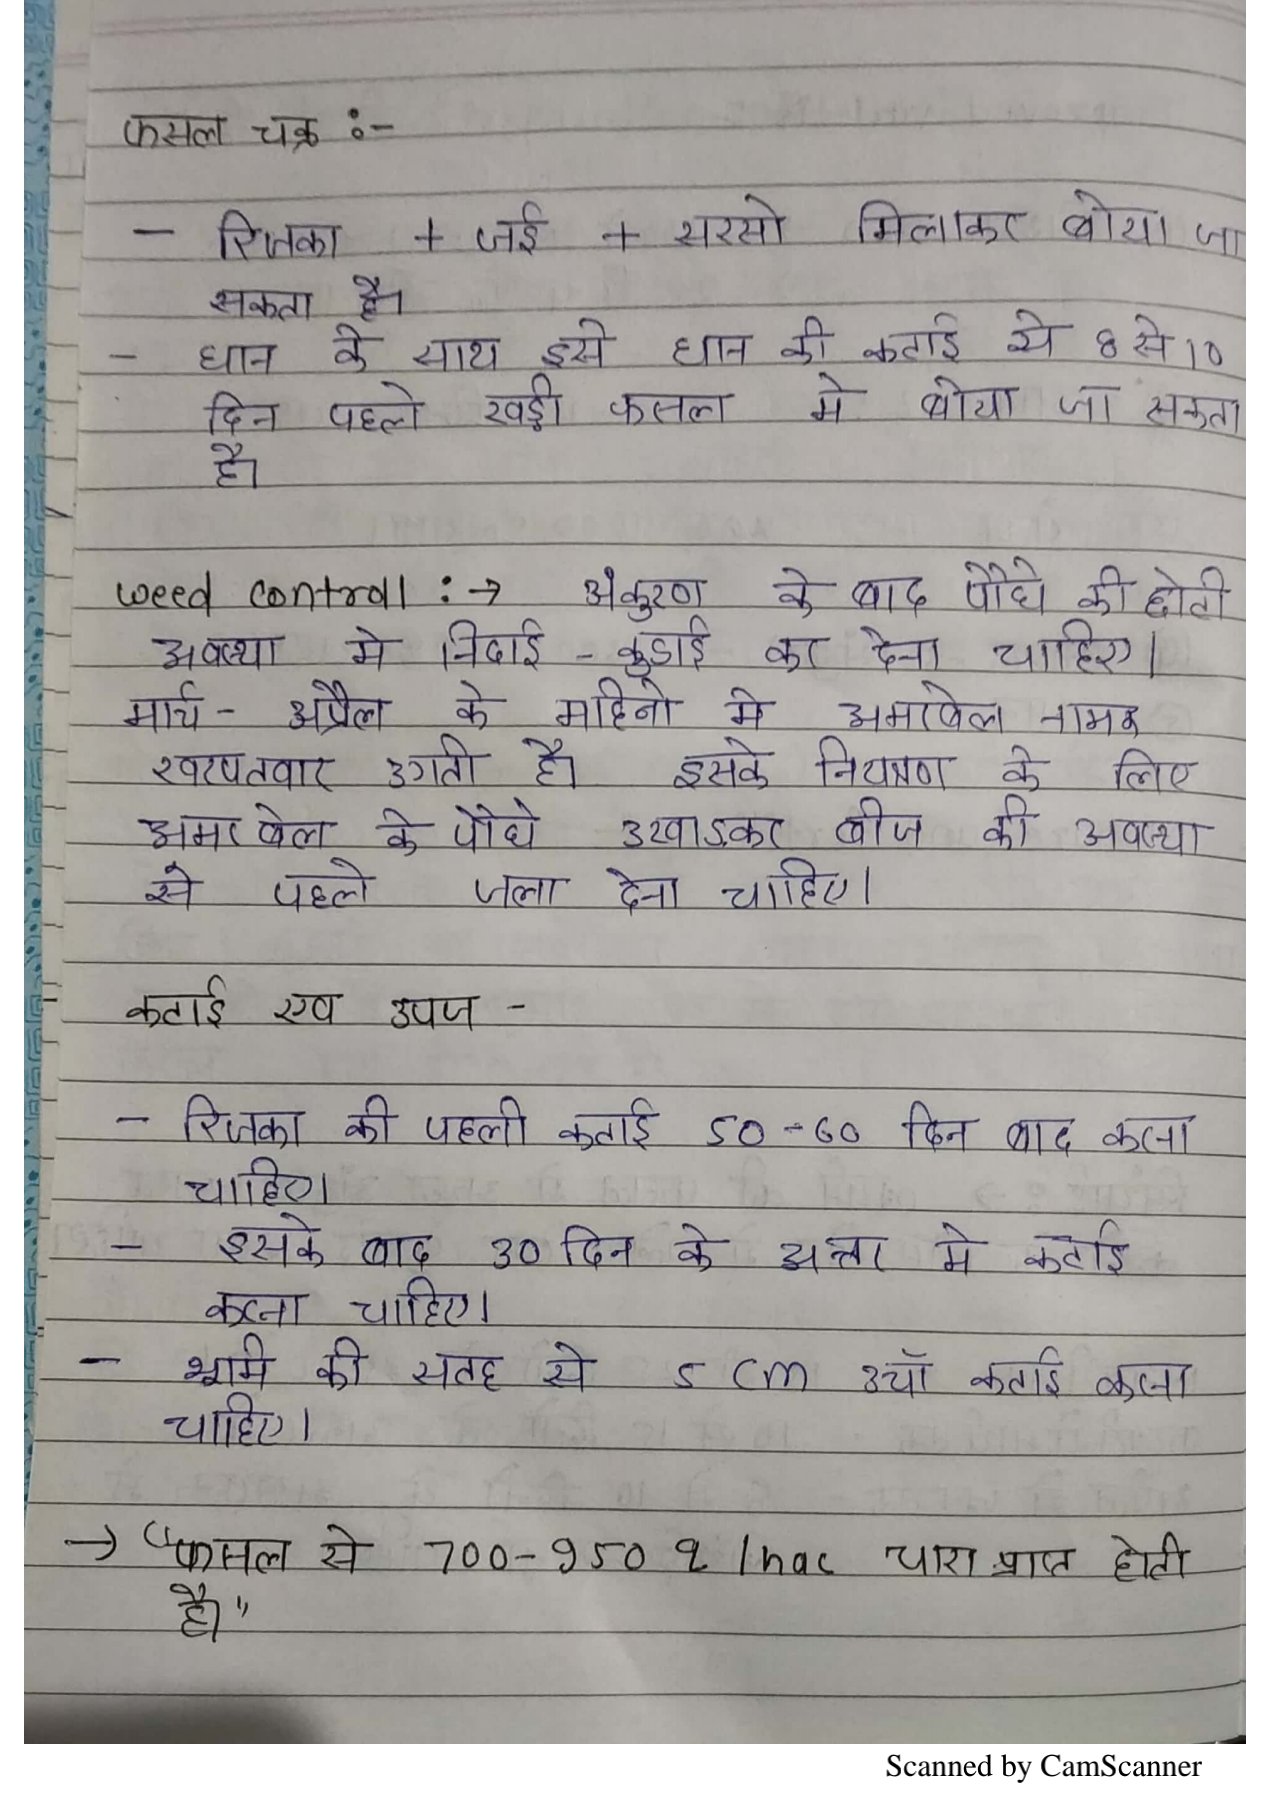 फसल चक्र :-
- रिजका + जई + सरसो मिलाकर बोया जा
सकता है।
- धान के साथ इसे धान की कटाई से 8 से 10
दिन पहले खड़ी फसल मे बोया जा सकता
है।
weed control :→ अंकुरण के बाद पौधे की छोटी
अवस्था मे निदाई - कुडाई कर देना चाहिए।
मार्च - अप्रैल के महिनो मे अमरबेल नामक
खरपतवार उगती है। इसके नियत्रण के लिए
अमरबेल के पौधे उखाडकर बीज की अवस्था
से पहले जला देना चाहिए।
कटाई एव उपज -
- रिजका की पहली कटाई 50-60 दिन बाद करना
चाहिए।
- इसके बाद 30 दिन के अन्तर मे कटाई
करना चाहिए।
- भूमि की सतह से 5 cm उचाँ कटाई करना
चाहिए।
→ "फसल से 700-950 q /hac चारा प्राप्त होती
है।"
Scanned by CamScanner